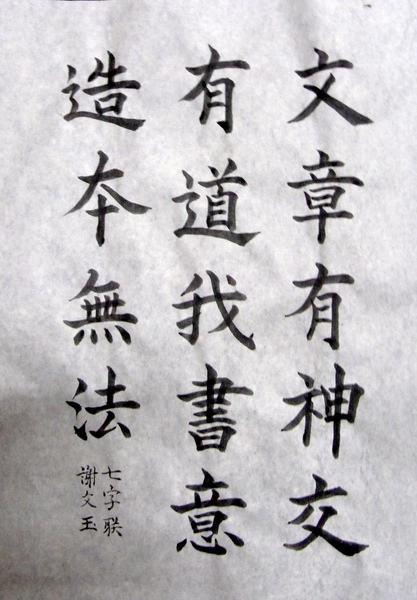 文章有神交
有道我書意
造本無法
七字联
謝文玉